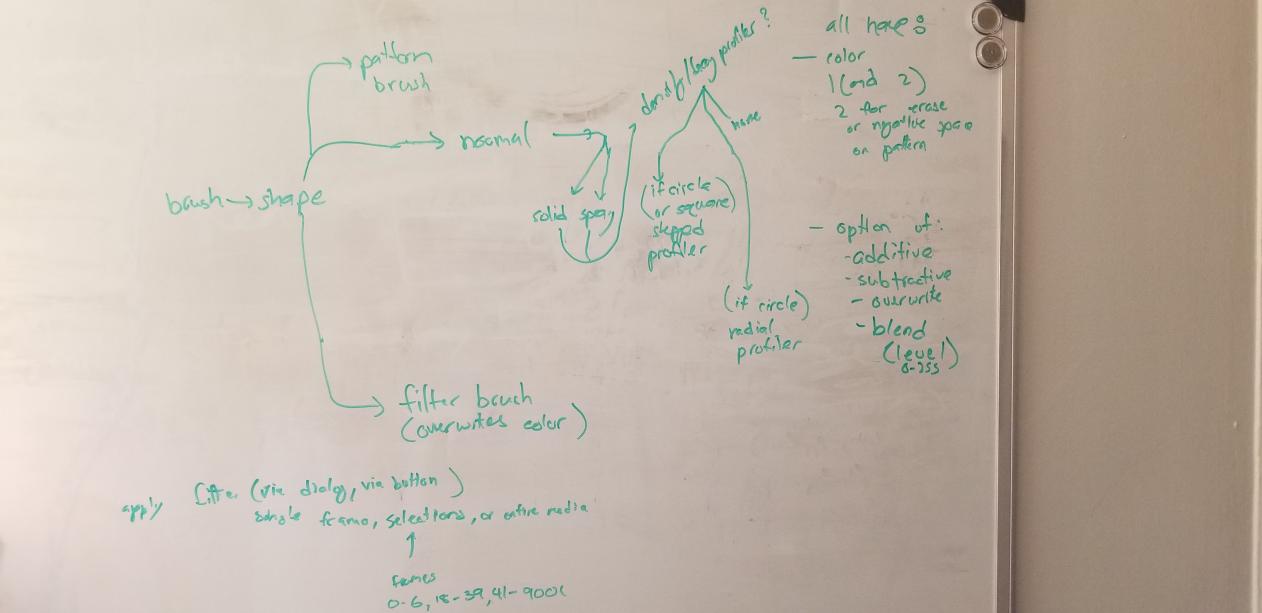 pattern
brush
brush → shape
normal
solid spray
profiler?
none
(if circle
or square)
stepped
profiler
(if circle)
radial
profiler
filter brush
(overwrites color)
all have:
- color
1 (and 2)
2 for erase
or negative space
on pattern
- option of:
- additive
- subtractive
- overwrite
- blend
(level)
0-255
apply filter (via dialog, via button)
single frame, selections, or entire media
frames
0-6, 18-39, 41-900